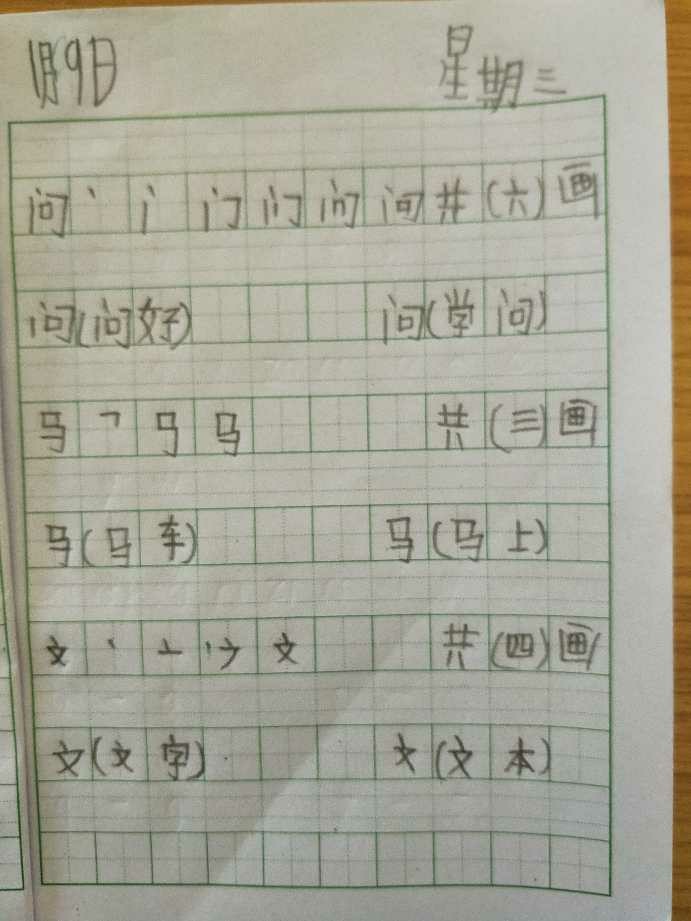 1月9日 星期三
问丶讠门门问问共(六)画
问(问好) 问(学问)
马㇕马马 共(三)画
马(马车) 马(马上)
文丶亠文 共(四)画
文(文字) 文(文本)